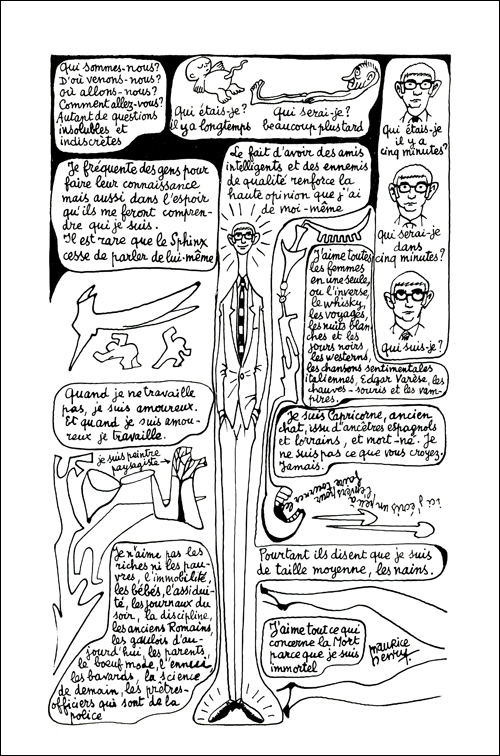 Qui sommes-nous?
D'où venons-nous?
où allons-nous?
Comment allez-vous?
Autant de questions
insolubles et
indiscrètes
Qui étais-je?
il y a longtemps
Qui serai-je?
beaucoup plus tard
Qui étais-je
il y a
cinq minutes?
Je fréquente des gens pour
faire leur connaissance
mais aussi dans l'espoir
qu'ils me feront compren-
dre qui je suis.
Il est rare que le Sphinx
cesse de parler de lui-même
Le fait d'avoir des amis
intelligents et des ennemis
de qualité renforce la
haute opinion que j'ai
de moi-même
Qui serai-je
dans
cinq minutes?
Qui suis-je?
J'aime toutes
les femmes
en une seule,
ou l'inverse,
le whisky,
les voyages,
les nuits blan
ches et les
jours noirs
les westerns,
les chansons sentimentales
italiennes, Edgar Varèse, les
chauves-souris et les vam-
pires.
Quand je ne travaille
pas, je suis amoureux.
Et quand je suis amou-
reux je travaille.
je suis peintre
paysagiste
Je suis Capricorne, ancien
chat, issu d'ancêtres espagnols
et lorrains, et mort-né. Je
ne suis pas ce que vous croyez.
Jamais.
ici j'écris un peu à
l'envers pour
faire tourner
Pourtant ils disent que je suis
de taille moyenne, les nains.
Je n'aime pas les
riches ni les pau-
vres, l'immobilité,
les bébés, l'assidui-
té, les journaux du
soir, la discipline,
les anciens Romains,
les gaulois d'au-
jourd'hui, les parents,
le bœuf mode, l'ennui
les bavards, la science
de demain, les prêtres-
officiers qui sont de la
police
J'aime tout ce qui
concerne la Mort
parce que je suis
immortel
maurice
henry.